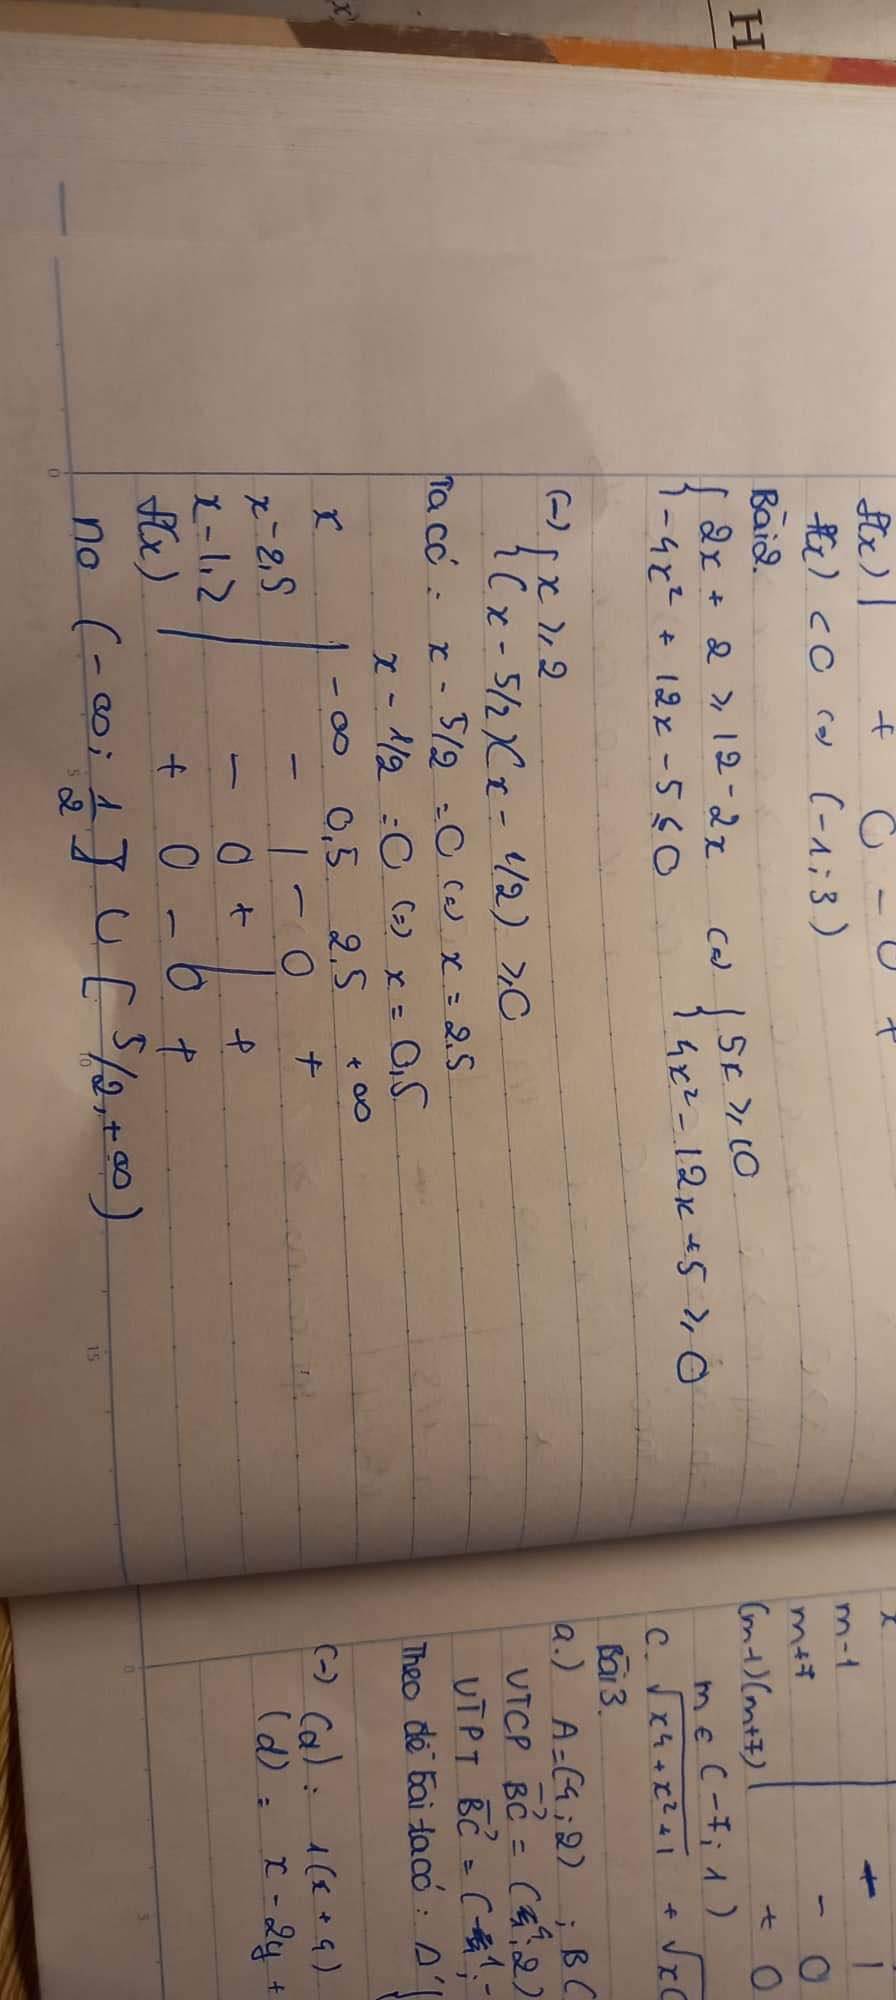 H
x)
f(x) | + 0 - 0 +
f(x) < 0 (=) (-1; 3)
Bài2.
{ 2x + 2 ≥ 12 - 2x (=) { 5x ≥ 10
{ -4x² + 12x - 5 ≤ 0 { 4x² - 12x + 5 ≥ 0
(=) { x ≥ 2
{ (x - 5/2)(x - 1/2) ≥ 0
Ta có: x - 5/2 = 0 (=) x = 2.5
x - 1/2 = 0 (=) x = 0,5
x | -∞ 0,5 2,5 +∞
x-2,5 - | - 0 +
x-1,2 - 0 + | +
f(x) | + 0 - 0 +
no (-∞; 1/2] U [5/2, +∞)
x
m-1 + |
m+7 - 0
(m-1)(m+7) | + 0
m ∈ (-7; 1)
c. √x⁴+x²+1 + √x(
Bài3.
a.) A=(-4; 2) ; B(
VTCP BC =
VTPT BC =
Theo đề bài ta có: Δ
(=) (d): 1(x+4)
(d) = x - 2y +